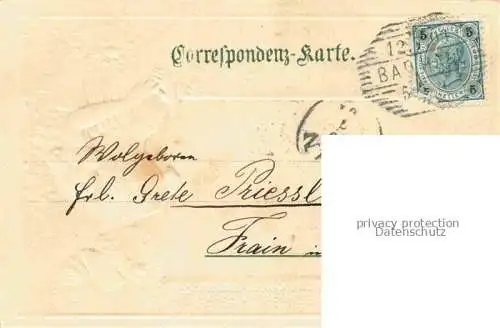 Correspondenz-Karte.
5 5
12
BAD
5 5
Wolgeboren
Frl. Grete Priessl
Frain in
privacy protection
Datenschutz